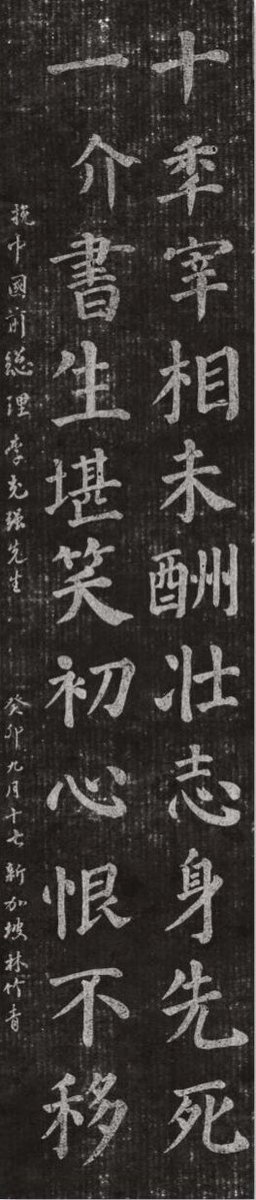 十秊宰相未酬壮志身先死
一介書生堪笑初心恨不移
挽中国前総理李克强先生
癸卯九月十七新加坡林竹青